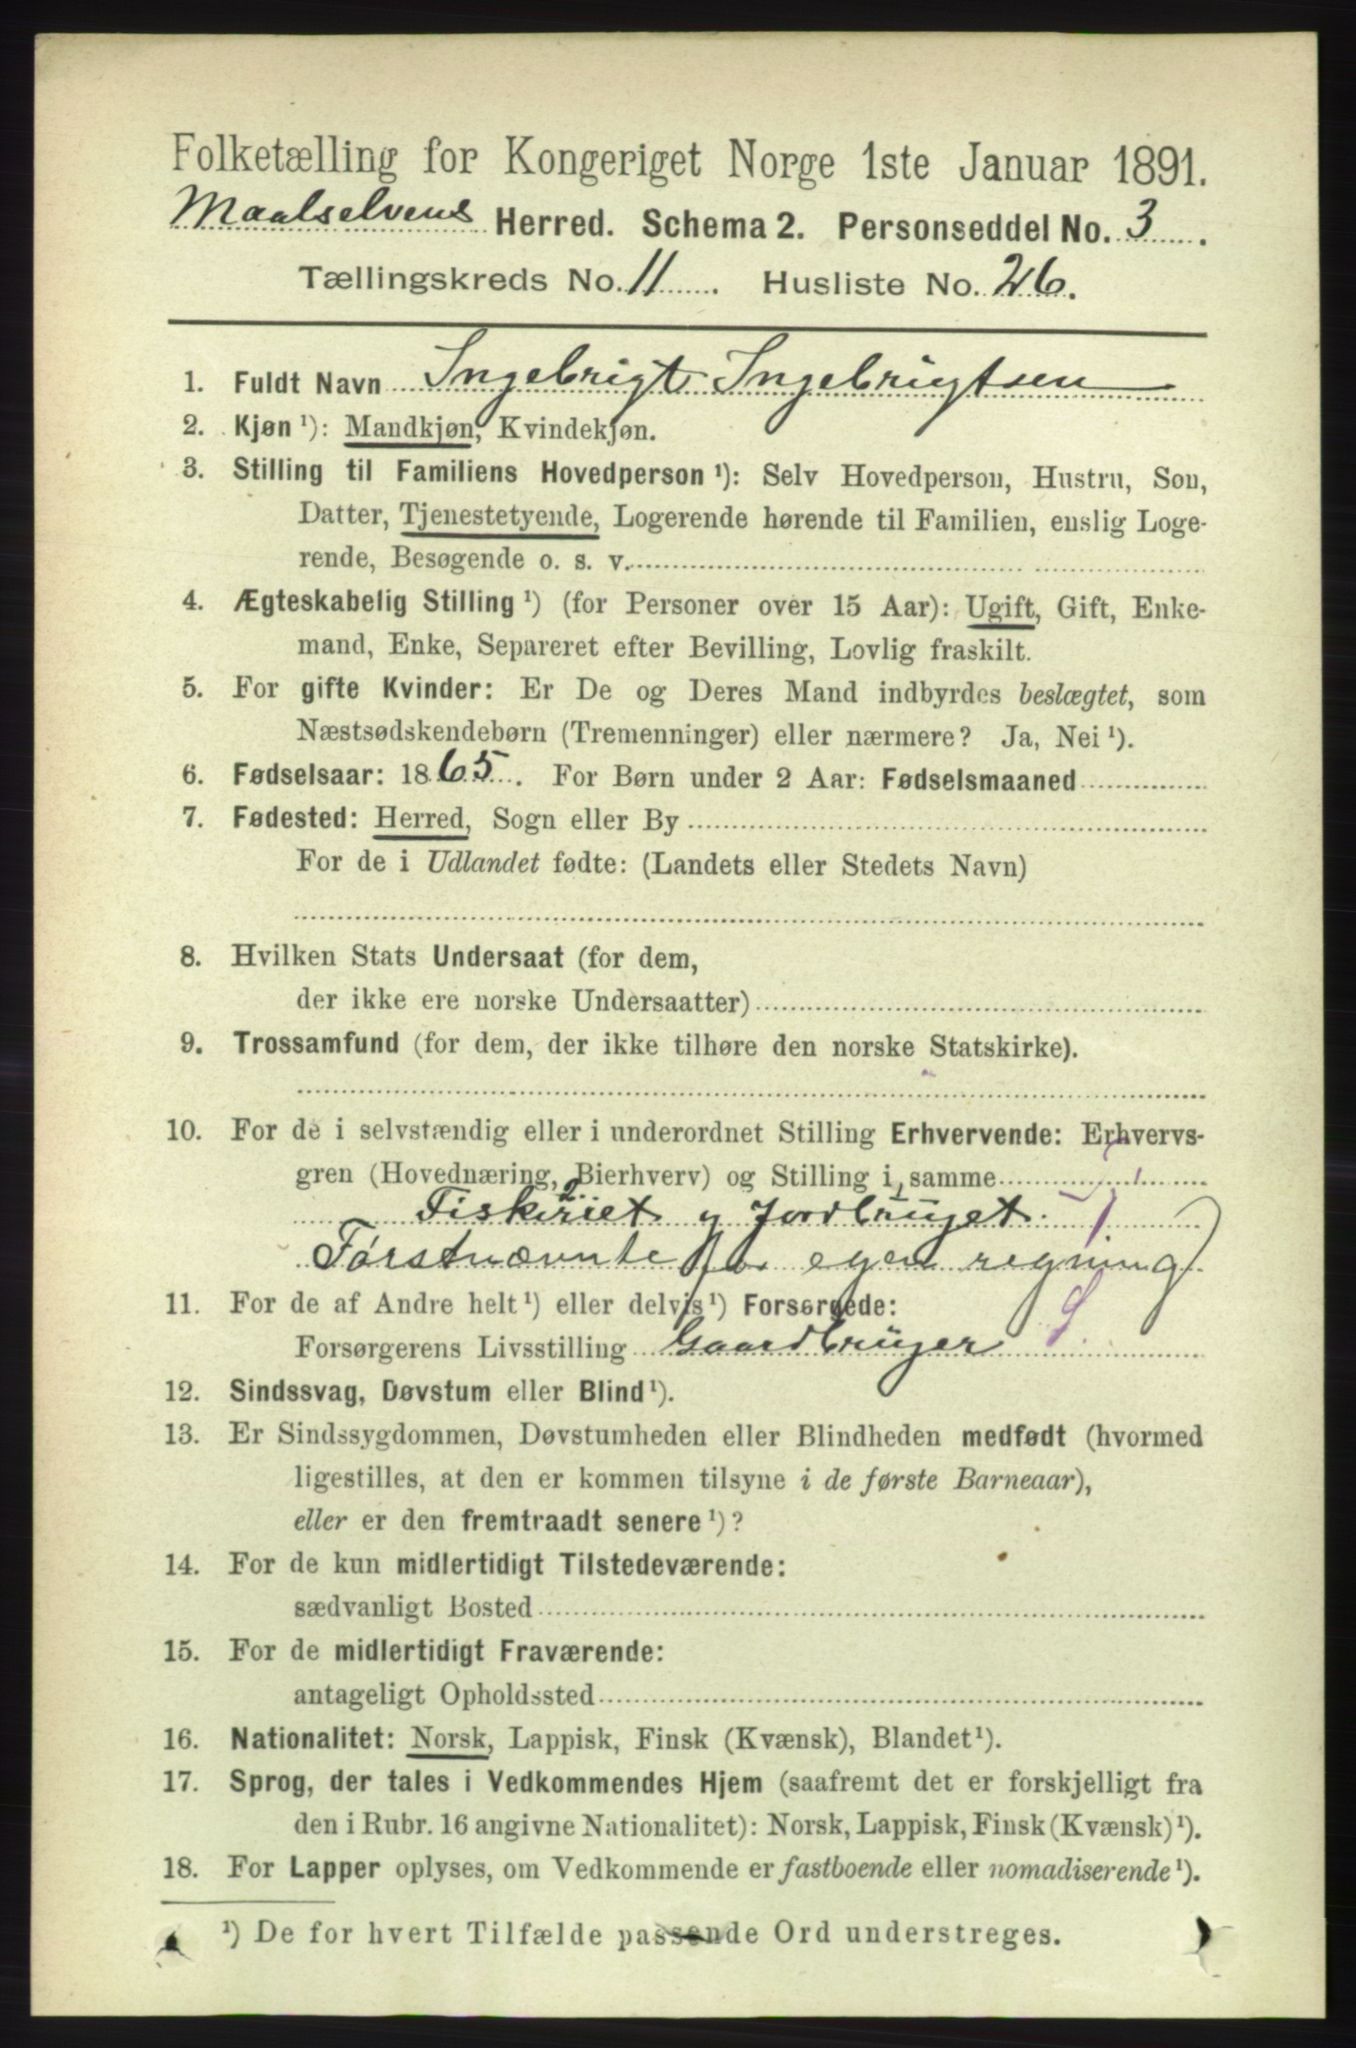 Folketælling for Kongeriget Norge 1ste Januar 1891.
Maalselvens Herred. Schema 2. Personseddel No. 3.
Tællingskreds No. 11. Husliste No. 26.
1. Fuldt Navn Ingebrigt Ingebrigtsen
2. Kjøn ¹): Mandkjøn, Kvindekjøn.
3. Stilling til Familiens Hovedperson ¹): Selv Hovedperson, Hustru, Søn,
Datter, Tjenestetyende, Logerende hørende til Familien, enslig Loge-
rende, Besøgende o. s. v.
4. Ægteskabelig Stilling ¹) (for Personer over 15 Aar): Ugift, Gift, Enke-
mand, Enke, Separeret efter Bevilling, Lovlig fraskilt.
5. For gifte Kvinder: Er De og Deres Mand indbyrdes beslægtet, som
Næstsødskendebørn (Tremenninger) eller nærmere? Ja, Nei ¹).
6. Fødselsaar: 1865. For Børn under 2 Aar: Fødselsmaaned
7. Fødested: Herred, Sogn eller By
For de i Udlandet fødte: (Landets eller Stedets Navn)
8. Hvilken Stats Undersaat (for dem,
der ikke ere norske Undersaatter)
9. Trossamfund (for dem, der ikke tilhøre den norske Statskirke).
10. For de i selvstændig eller i underordnet Stilling Erhvervende: Erhvervs-
gren (Hovednæring, Bierhverv) og Stilling i samme
2 1
Fiskeriet og Jordbruget.
Førstnævnte for egen regning
11. For de af Andre helt ¹) eller delvis ¹) Forsørgede:
Forsørgerens Livsstilling Gaardbruger
12. Sindssvag, Døvstum eller Blind ¹).
13. Er Sindssygdommen, Døvstumheden eller Blindheden medfødt (hvormed
ligestilles, at den er kommen tilsyne i de første Barneaar),
eller er den fremtraadt senere ¹)?
14. For de kun midlertidigt Tilstedeværende:
sædvanligt Bosted
15. For de midlertidigt Fraværende:
antageligt Opholdssted
16. Nationalitet: Norsk, Lappisk, Finsk (Kvænsk), Blandet ¹).
17. Sprog, der tales i Vedkommendes Hjem (saafremt det er forskjelligt fra
den i Rubr. 16 angivne Nationalitet): Norsk, Lappisk, Finsk (Kvænsk) ¹).
18. For Lapper oplyses, om Vedkommende er fastboende eller nomadiserende ¹).
¹) De for hvert Tilfælde passende Ord understreges.